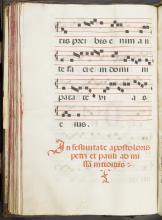 tis prei bis e nim an
te fa ci e m do mi ni
para re vi as
e ius.
In festiuitate apostolorū
petri et pauli ad mi
ssā introitus